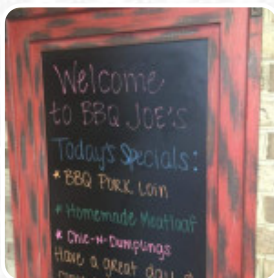 Welcome
to BBQ JOE'S
Today's Specials:
* BBQ Pork Loin
* Homemade Meatloaf
* Chic-N-Dumplings
Have a great day